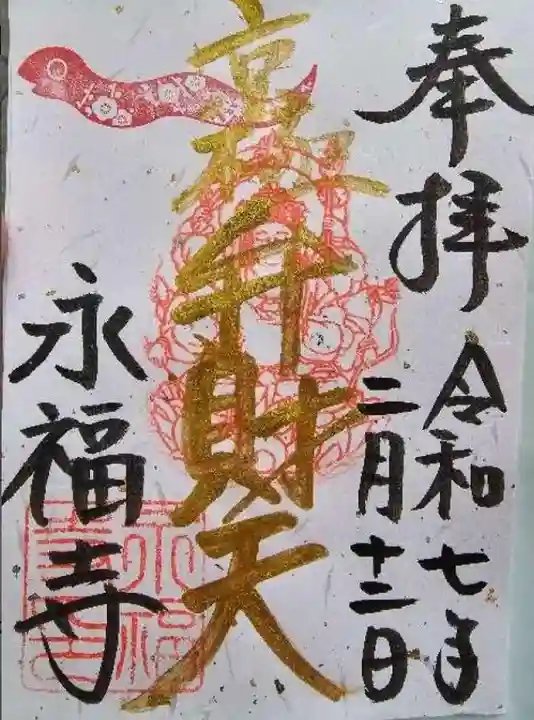 奉拝
令和七年
二月十二日
弁財天
永福寺